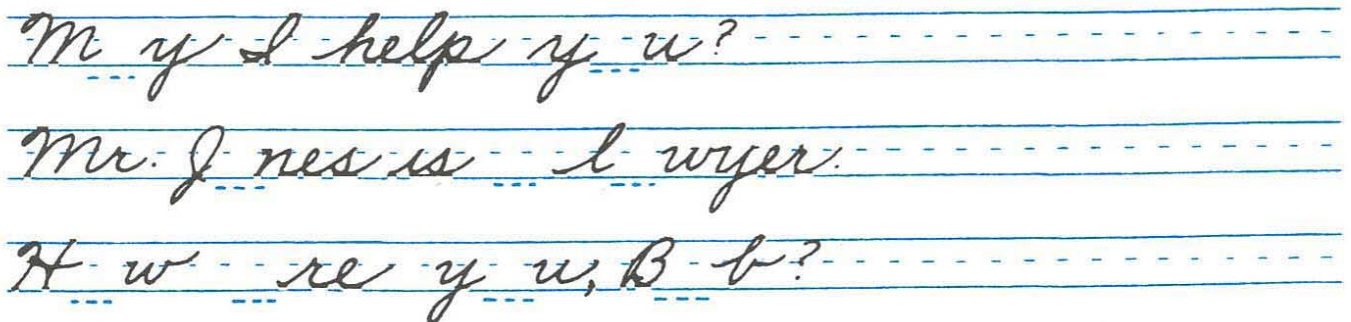 M___y I help y___u?
Mr. J___nes is ___ l___wyer.
H___w ___re y___u, B___b?